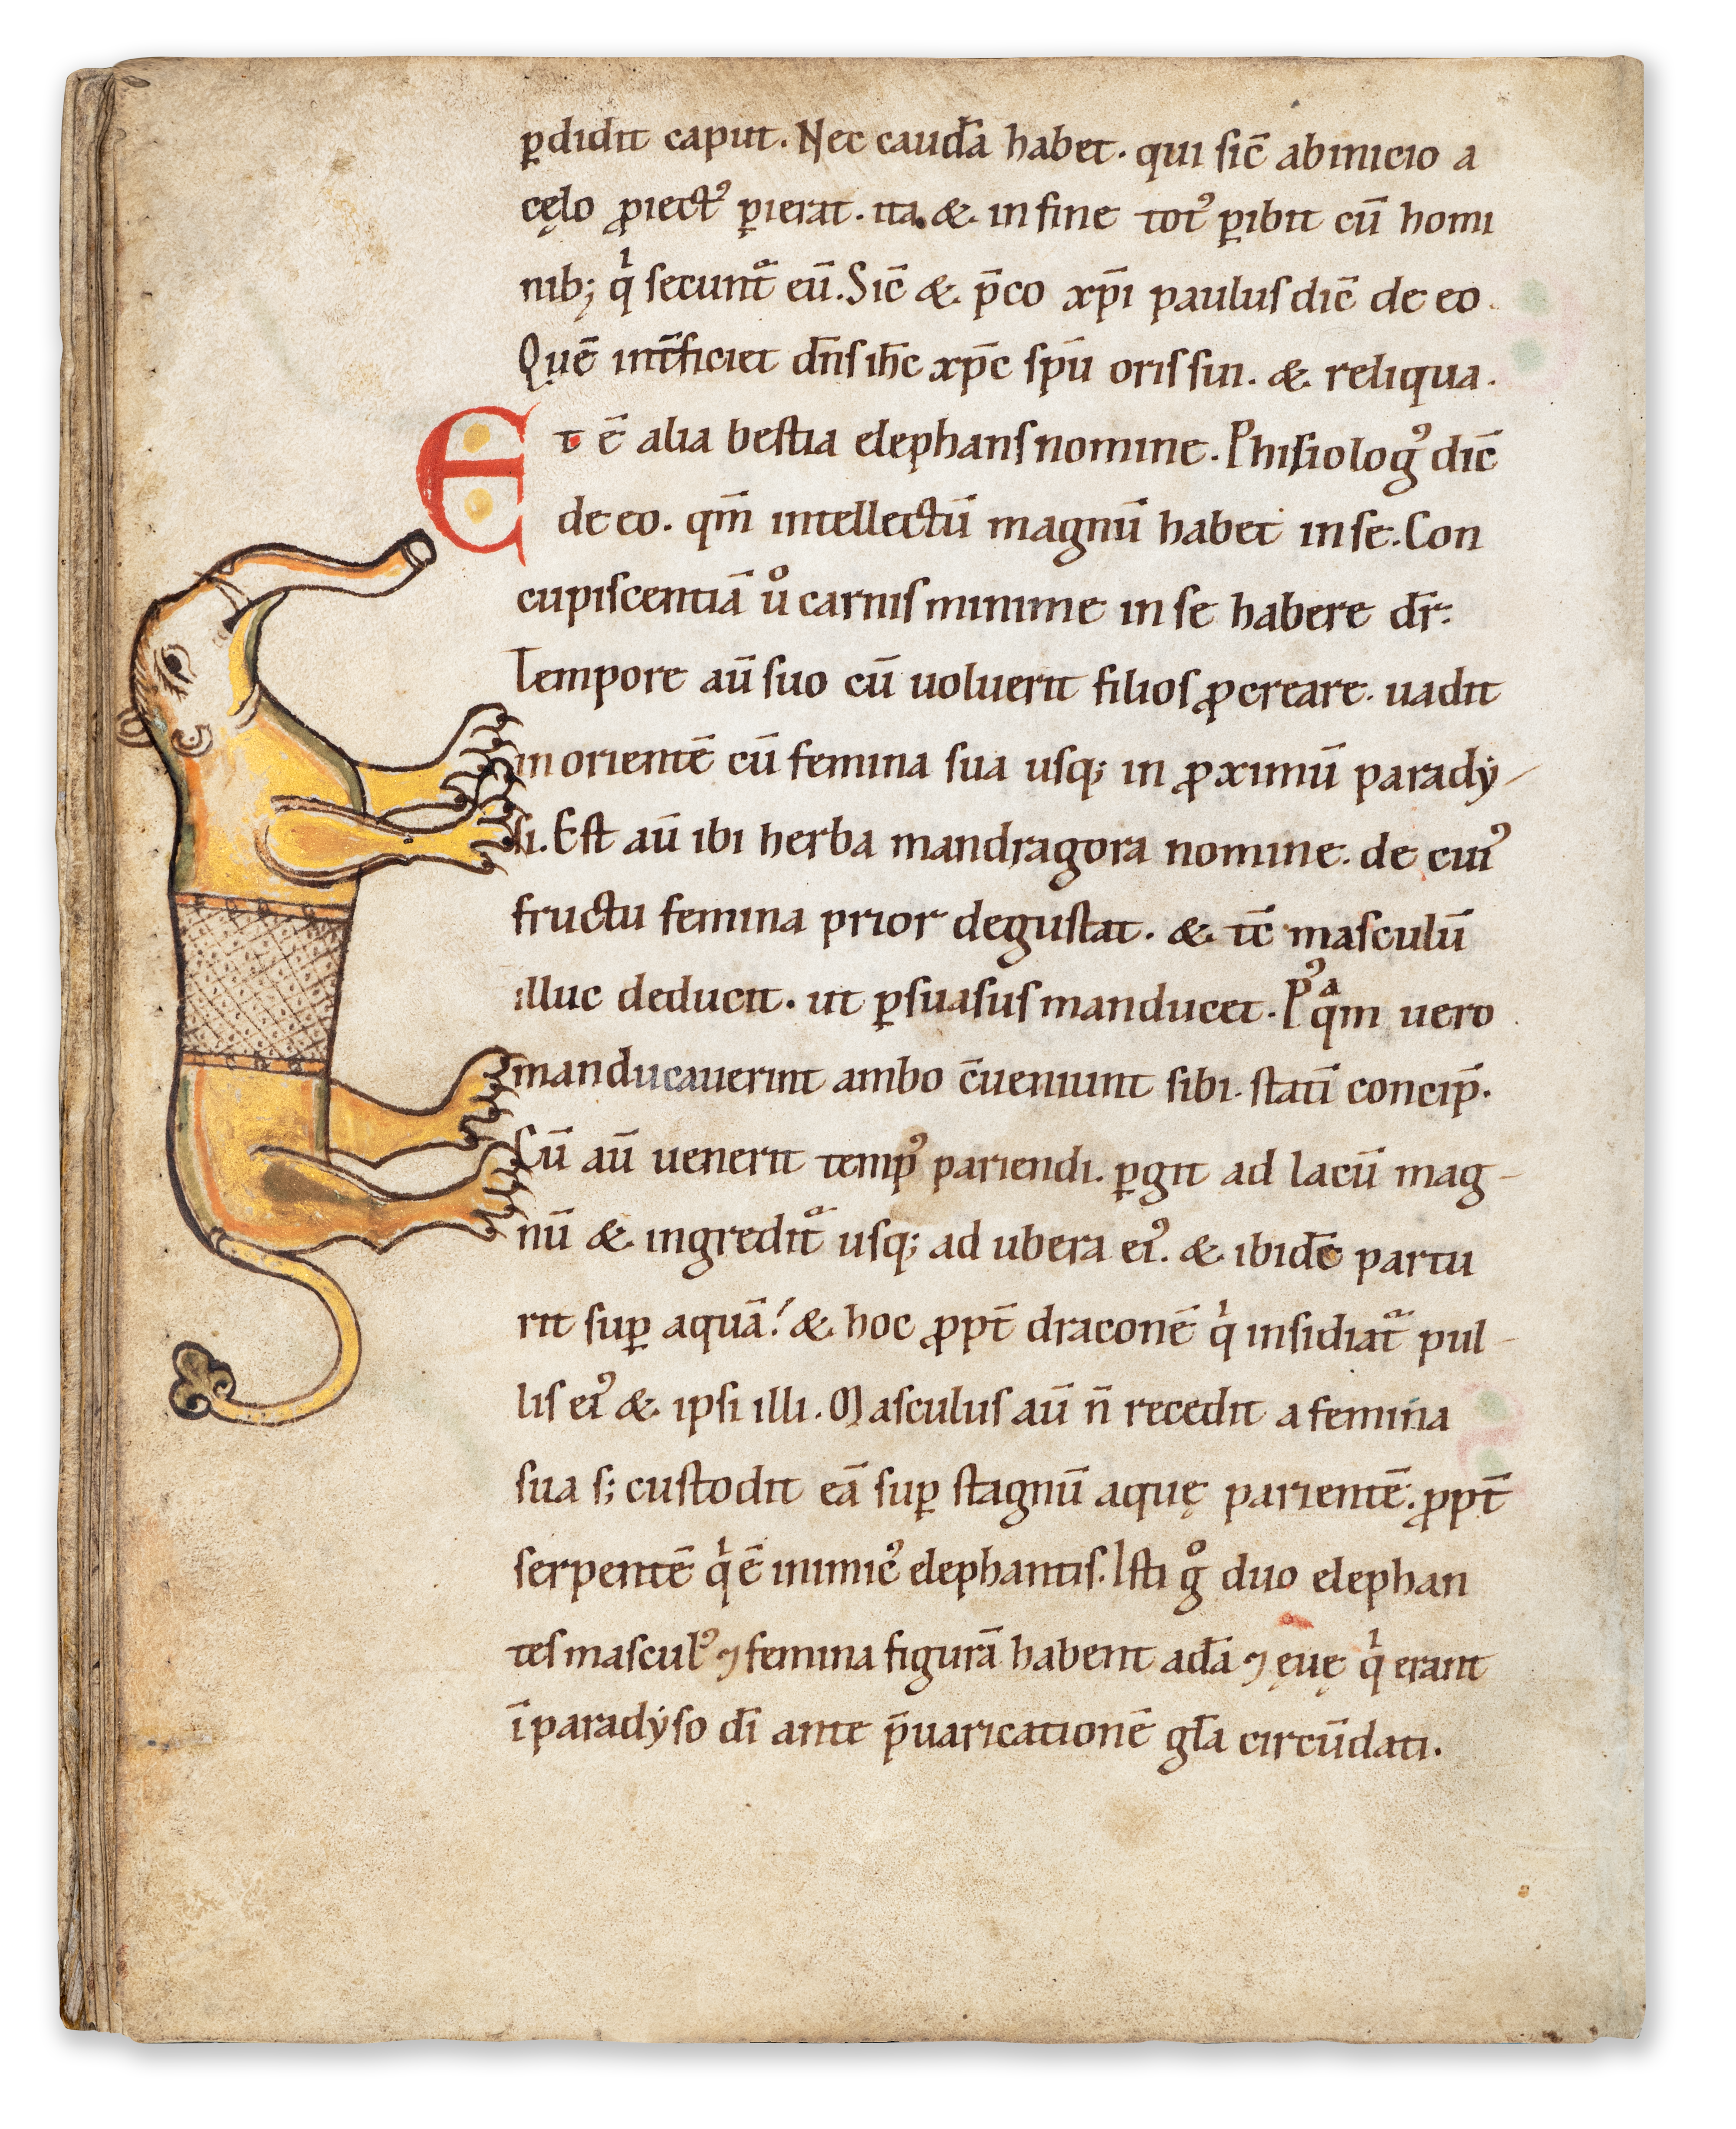 ꝑdidit caput. Nec caudā habet. qui sic̄ abinicio a
cęlo ꝓiectꝰ ꝑierat. ita. &. in fine totꝰ ꝑibit cū homi
nib; qͥ secunt᷑ eū. Sic̄ &. p̄co xp̄i paulus dic̄ de eo.
Quē int̄ficiet dn̄s ih̄c xp̄c sp̄u oris sui. &. reliqua.
Et ē alia bestia elephans nomine. Phisiologꝰ dic̄
de eo. qm̄ intellectū magnū habet in se. Con
cupiscentiā uͦ carnis minime in se habere dr̄.
Tempore aū suo cū uoluerit filios ꝓcreare. uadit
in orientē cū femina sua usq; in ꝓximū parady
si. Est aū ibi herba mandragora nomine. de cuiꝰ
fructu femina prior degustat. &. tc̄ masculū
illuc deducit. ut ꝑsuasus manducet. Pꝰqᵃm uero
manducauerint ambo c̄ueniunt sibi. statī concip̄.
Cū aū uenerit tempꝰ pariendi. ꝑgit ad lacū mag
nū &. ingredit᷑ usq; ad ubera eiꝰ. &. ibidē partu
rit suꝑ aquā. &. hoc ꝓpt̄ draconē qͥ insidiat᷑ pul
lis eiꝰ &. ipsi illi. Masculus aū n̄ recedit a femina
sua s; custodit eā suꝑ stagnū aquę parientē. ꝓpt̄
serpentē qͥ ē inimicꝰ elephantis. Isti gͦ duo elephan
tes masculꝰ ⁊ femina figurā habent adā ⁊ ęuę qͥ erant
ī paradẏso dī ante p̄uaricationē gl̄a circūdati.